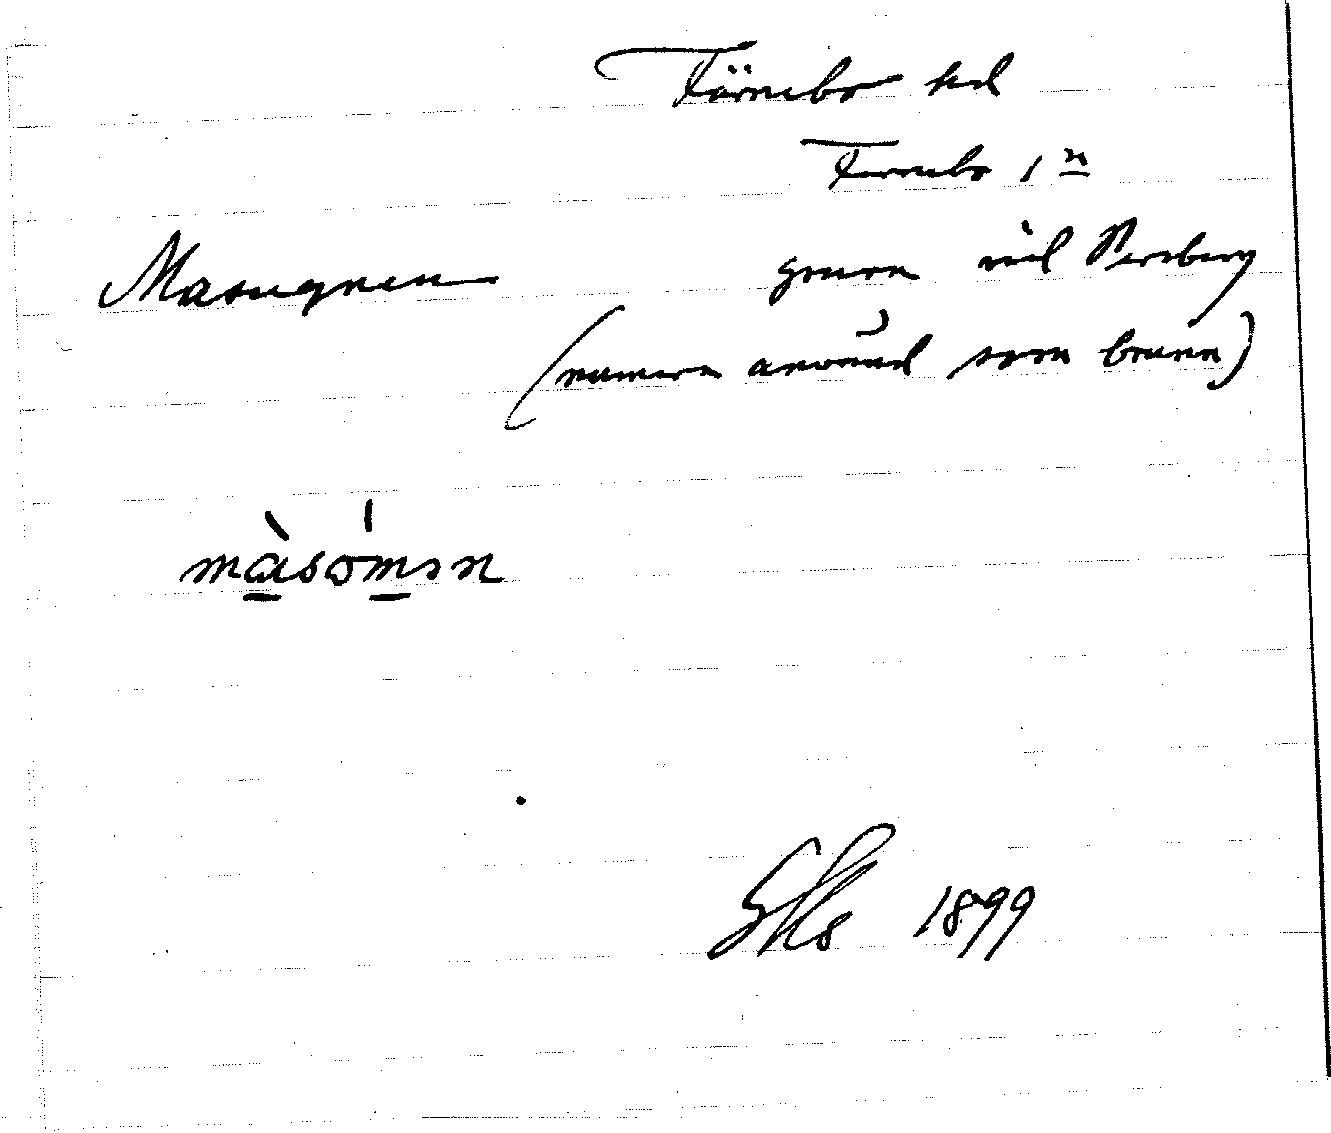 Färnebo hd
Färnebo 1 n
Masugnen gruva vid Persberg
(numera använd som brunn)
màsómən
1899